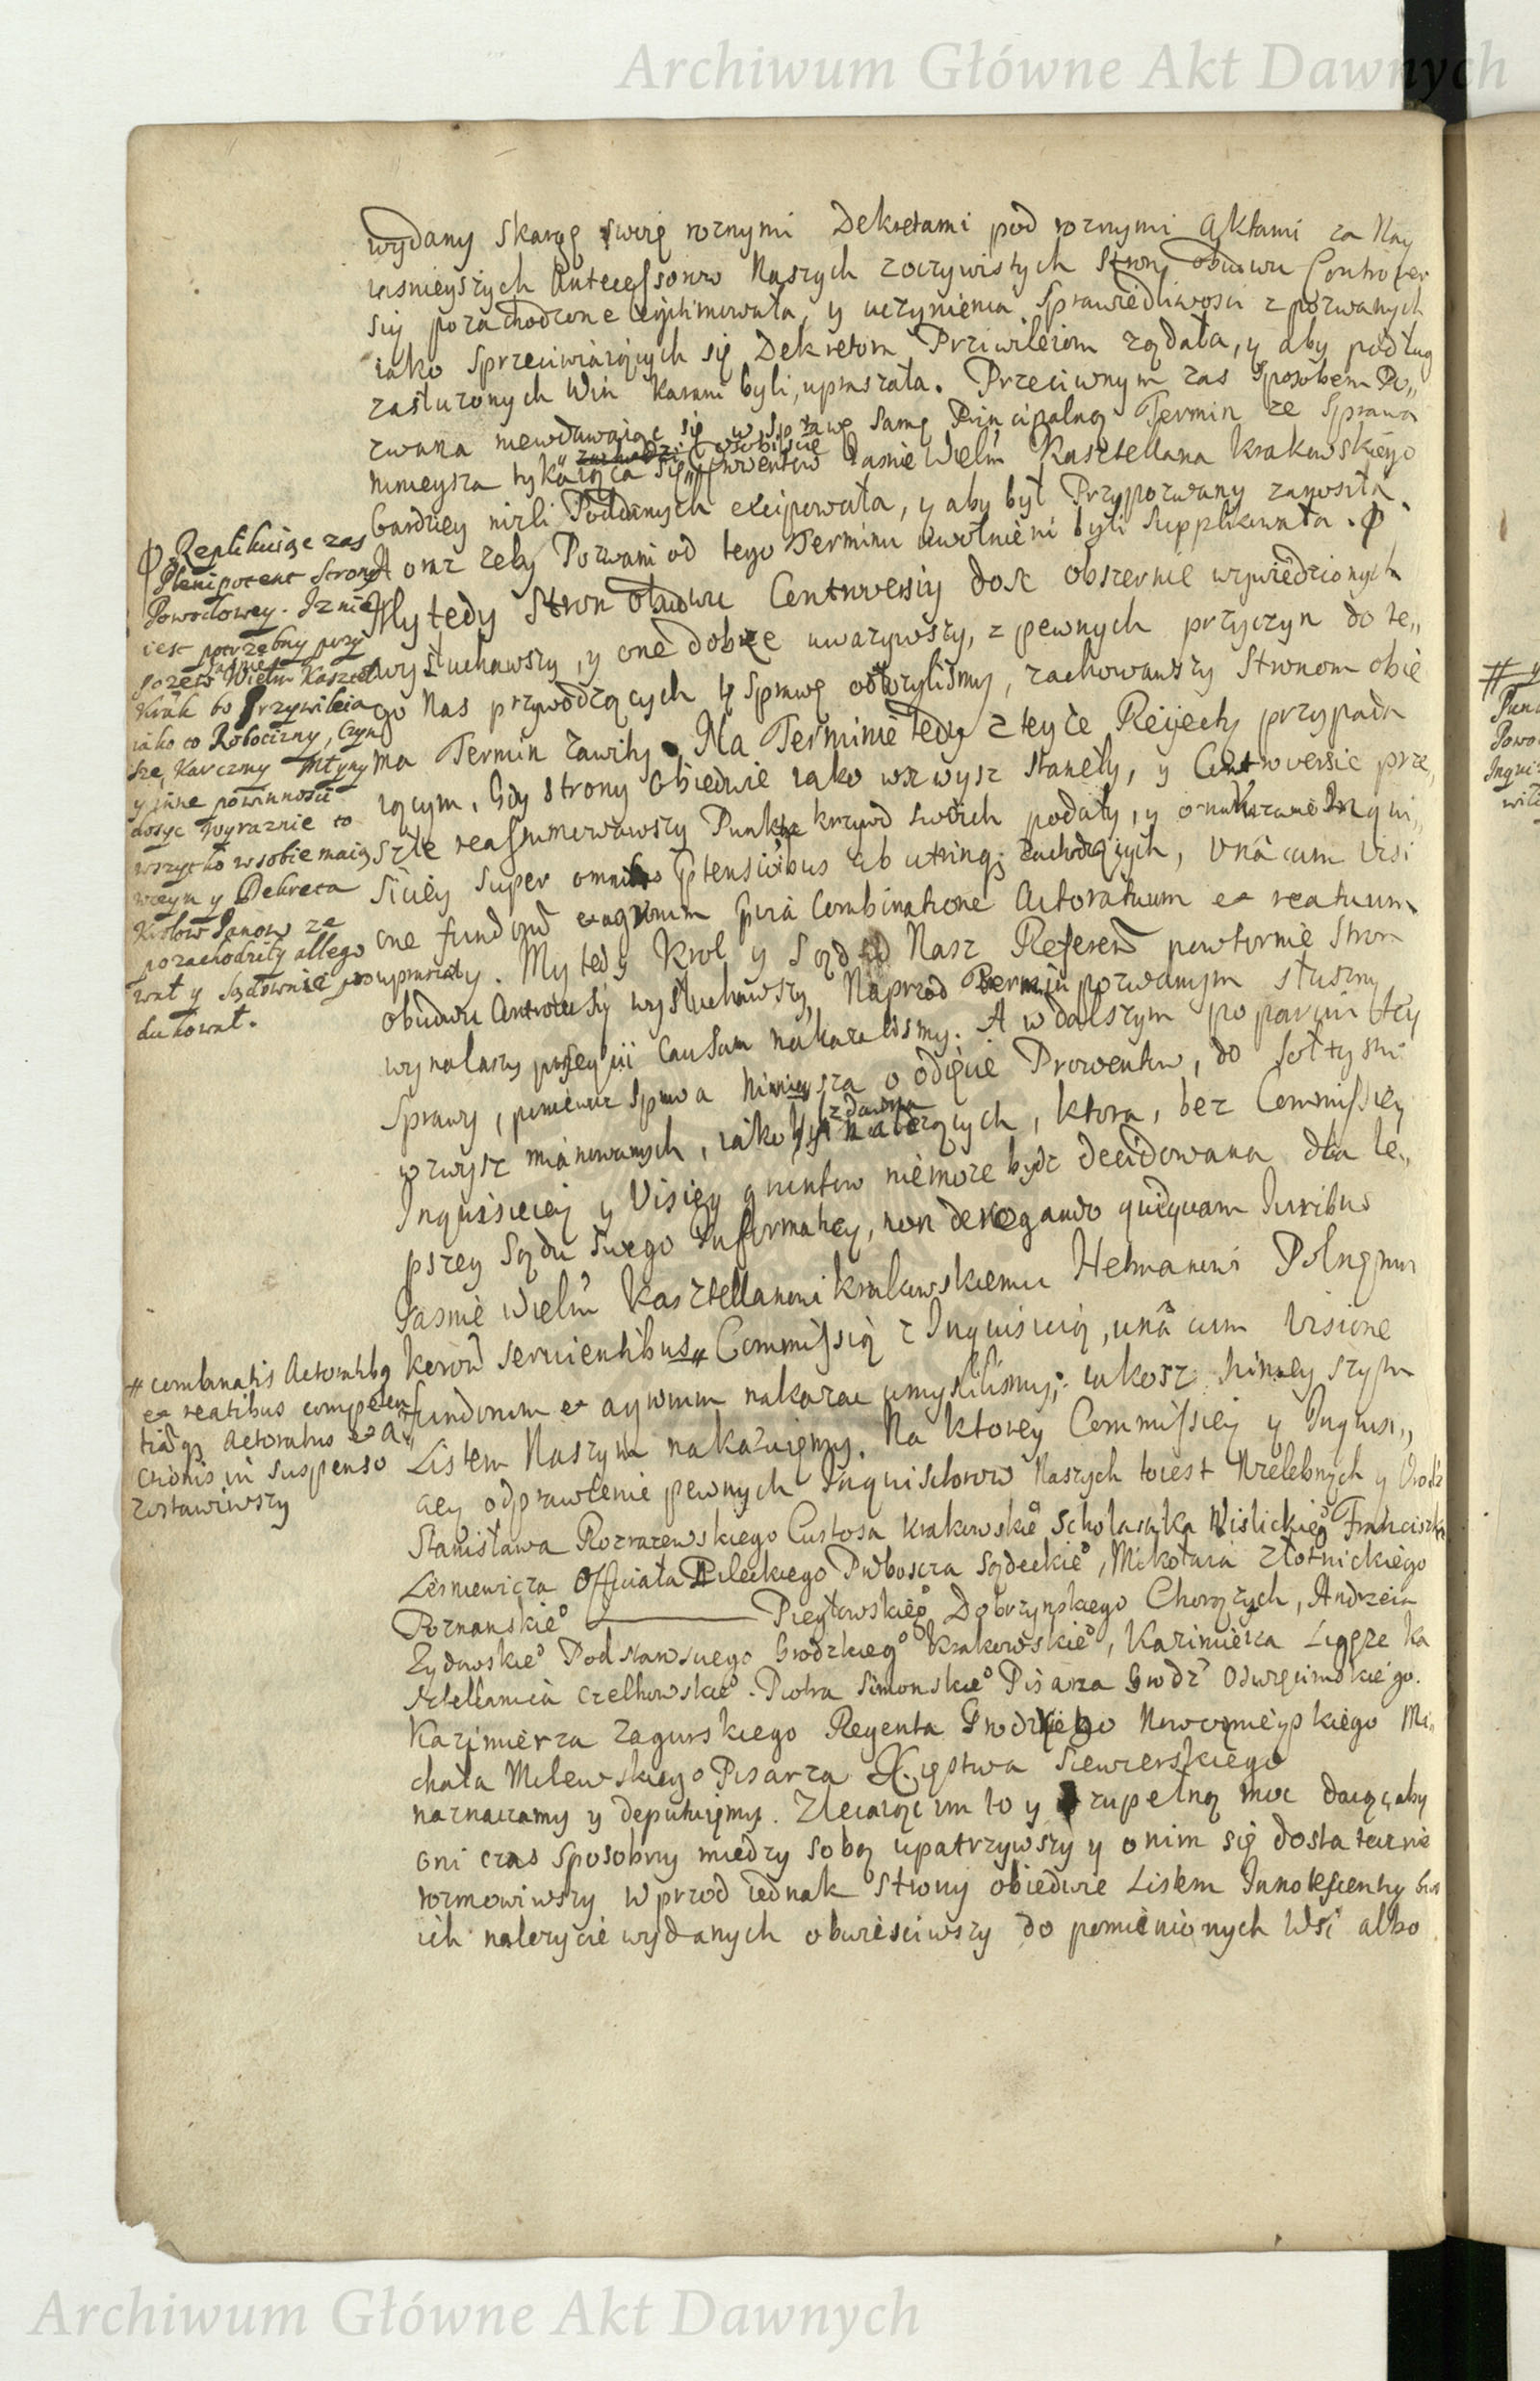 Archiwum Główne Akt Dawnych
wydany skargę swoię roznymi Dekretami pod roznymi Aktami za Nay
iasnieyszych Antecessorow Naszych zoczywistych Stron obudwu Controver
siy pozachodzone legitimowała, y uczynienia sprawiedliwosci z pozwanych
iako sprzeciwiaiących się Dekretom Przywileiom ządała, y aby podług
zasłuzonych Win karani byli, upraszała. Przeciwnym zas sposobem Po„
zwana niewdawaiąc się w sprawę samę Principalną Termin ze Sprawa
ninieysza tykaiąca się Prowentow Jasnie Wielm Kasztellana Krakowskiego
bardziey nizli Poddanych excipowała, y aby był Przypozwany zanosiła
A oraz zeby Pozwani od tego Terminu uwolnieni byli supplikowała. Φ
My tedy Stron obudwu Controversiy dosc obszernie wywiedzionych
wysłuchawszy, y one dobrze uwazywszy, z pewnych przyczyn do te„
go Nas przywodzących tę sprawę odłozylismy, zachowawszy Stronom obie
ma Termin zawity. Na Terminie tedy z teyze Reiecty przypada
iącym, Gdy strony obiedwie iako wzwysz stanęły, y Controversie prze„
szłe reassumowawszy Punkta krzywd swoich podały, y o nakazanie Inqui„
siciey super omnibus ptensionibus ab utrinq; zachodzących, unâ cum Visi
one fundorum et agrorum pvia Combinatione Actoratuum et reatuum
upraszały. My tedy Krol y Sąd Nasz Referen powtornie Stron
obudwu Controversiy wysłuchawszy, Naprzod Termin pozwanym słuszny
wynalazszy prosequi causam nakazalismy. A w dalszym popairciu tey
Sprawy, poniewaz sprawa Ninieysza o odięcie Prowentow, do sołtystw
wzwysz mianowanych, iako z dawna nalezących, ktora, bez Commissiey
Inquisiciey y Visiey gruntow niemoze bydz decidowana dla le„
pszey Sądu Swego Informatiey, non derogando quidquam Iuribus
Jasnie Wielm Kasztellanowi Krakowskiemu Hetmanowi Polnemu
Koron servientibus # Commissią z Inquisicią, unâ cum Visione
fundorum et agrorum nakazac umyslilismy; iakosz ninieyszym
Listem Naszym nakazuięmy. Na ktorey Commissiey y Inquisi„
ciey odprawienie pewnych Inquisitorow Naszych toiest Wielebnych y Urodz
Stanisława Rozrazewskiego Custosa Krakowskie Scholastyka Wislickieo Franciszka
Lesniewicza Officiała Pileckiego Proboscza Sądeckieo, Mikołaia Złotnickiego
Poznanskieo Piegłowskieo Dobrzynskiego Chorązych, Andrzeia
Zydowskieo Podstarosciego Grodzkiego Krakowskieo, Kazimierza Liggze Ka
sztellanica Czechowskieo. Piotra Simonskieo Pisarza Grodz Oswięcimskiego.
Kazimierza Zagurskiego Regenta Grodzkiego Nowomieyskiego Mi„
chała Milewskiego Pisarza Xięstwa Siewierskiego
naznaczamy y deputuięmy. Zlecaiąc im to y zupełną moc daiąc, aby
oni czas sposobny miedzy sobą upatrzywszy y onim się dostatecznie
rozmowiwszy wprzod iednak Strony obiedwie Listem Innotescenty swo
ich nalezycie wydanych obwiesciwszy do pomienionych Wsi albo
Φ Replikuiąc zas
Plenipotent Strony
Powodowey. Iz nie
iest potrzebny przy
pozew Jasnie Wielm Kasztel
Krak bo Przywileia
iako co Robocizny, Czyn
sze, Karczmy Młyny
y inne powinnosci
dosyc wyraznie to
wszytko w sobie maią
w czym y Dekreta
Krolow Panow ze
pozachodziły allego
wał y sądownie pro
dukował.
# combinatis Actoratibq
et reatibus competen
tiaq; Actoratus et a„
ctionis in suspenso
zostawiwszy
Archiwum Główne Akt Dawnych